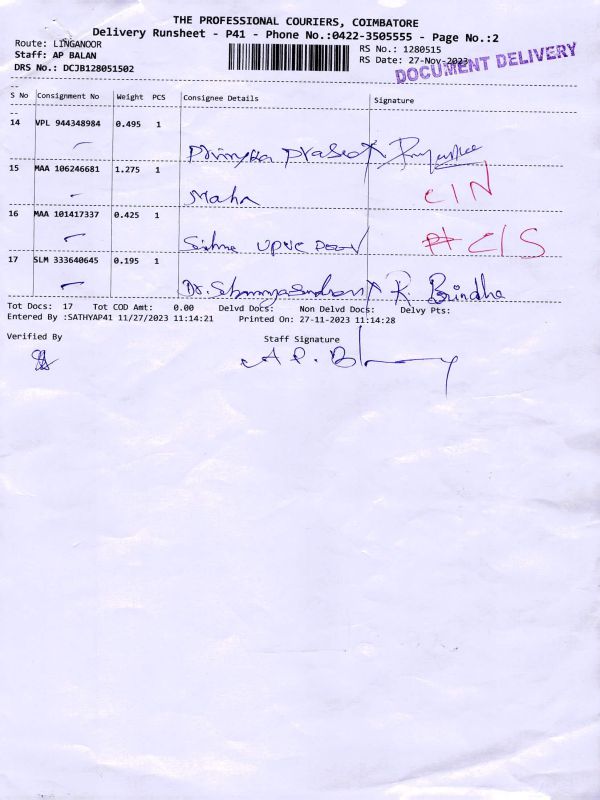 THE PROFESSIONAL COURIERS, COIMBATORE
Delivery Runsheet - P41 - Phone No.:0422-3505555 - Page No.:2
Route: LINGANOOR RS No.: 1280515
Staff: AP BALAN RS Date: 27-Nov-2023
DRS No.: DCJB128051502 DOCUMENT DELIVERY
S No Consignment No Weight PCS Consignee Details Signature
14 VPL 944348984 0.495 1
15 MAA 106246681 1.275 1
Maha C/N
16 MAA 101417337 0.425 1
UPVC C/S
17 SLM 333640645 0.195 1
Dr. K. Brindha
Tot Docs: 17 Tot COD Amt: 0.00 Delvd Docs: Non Delvd Docs: Delvy Pts:
Entered By :SATHYAP41 11/27/2023 11:14:21 Printed On: 27-11-2023 11:14:28
Verified By Staff Signature
A P. B